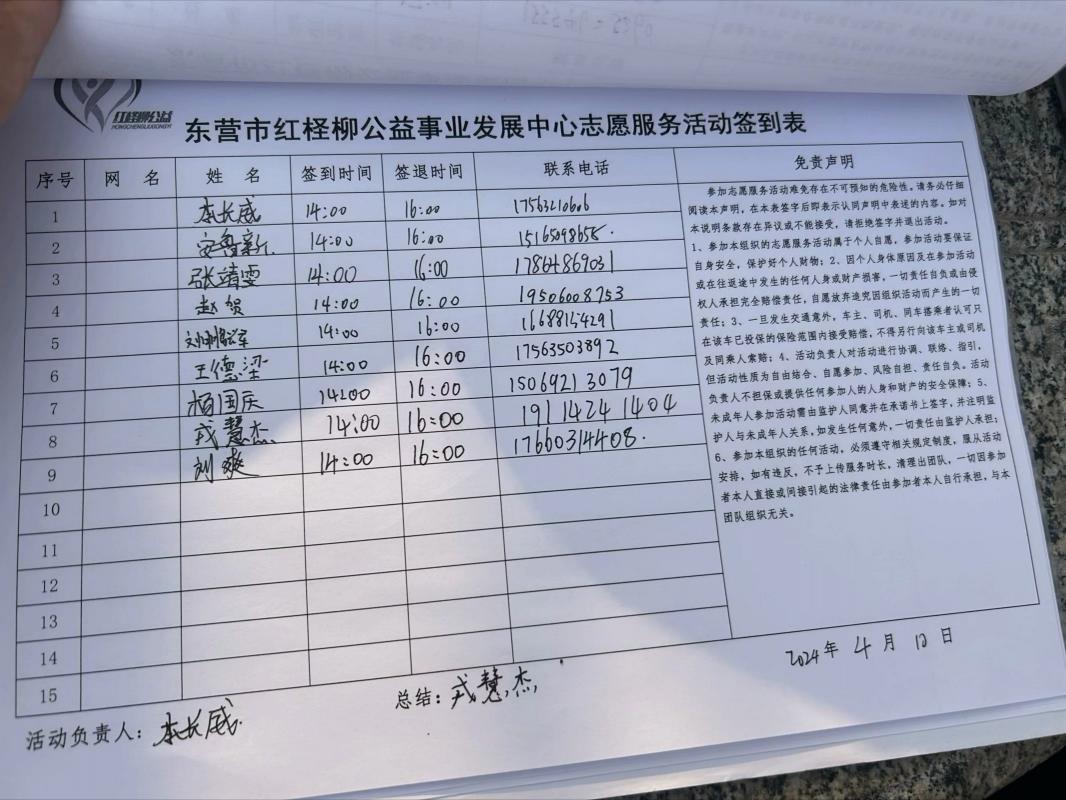 红柽柳公益
HONGCHENGLIUGONGYI
东营市红柽柳公益事业发展中心志愿服务活动签到表
序号 网 名 姓 名 签到时间 签退时间 联系电话 免责声明
1 李长威 14:00 16:00 17563210606
2 安鲁新 14:00 16:00 15165098658.
3 张靖雯 14:00 16:00 17864869031
4 赵贺 14:00 16:00 19506008753
5 14:00 16:00 16688154291
6 王德梁 14:00 16:00 17563503892
7 杨国庆 14:00 16:00 15069213079
8 戎慧杰 14:00 16:00 19114241404
9 刘爽 14:00 16:00 17660314408.
10
11
12
13
14
15
参加志愿服务活动难免存在不可预知的危险性。请务必仔细
阅读本声明，在本表签字后即表示认同声明中表述的内容。如对
本说明条款存在异议或不能接受，请拒绝签字并退出活动。
1、参加本组织的志愿服务活动属于个人自愿，参加活动要保证
自身安全，保护好个人财物；2、因个人身体原因及在参加活动
或在往返途中发生的任何人身或财产损害，一切责任自负或由侵
权人承担完全赔偿责任，自愿放弃追究因组织活动而产生的一切
责任；3、一旦发生交通意外，车主、司机、同车搭乘者认可只
在该车已投保的保险范围内接受赔偿，不得另行向该车主或司机
及同乘人索赔；4、活动负责人对活动进行协调、联络、指引，
但活动性质为自由结合、自愿参加、风险自担、责任自负。活动
负责人不担保或提供任何参加人的人身和财产的安全保障；5、
未成年人参加活动需由监护人同意并在承诺书上签字，并注明监
护人与未成年人关系，如发生任何意外，一切责任由监护人承担；
6、参加本组织的任何活动，必须遵守相关规定制度，服从活动
安排，如有违反，不予上传服务时长，清理出团队，一切因参加
者本人直接或间接引起的法律责任由参加者本人自行承担，与本
团队组织无关。
2024年 4月 12日
活动负责人：李长威 总结：戎慧杰